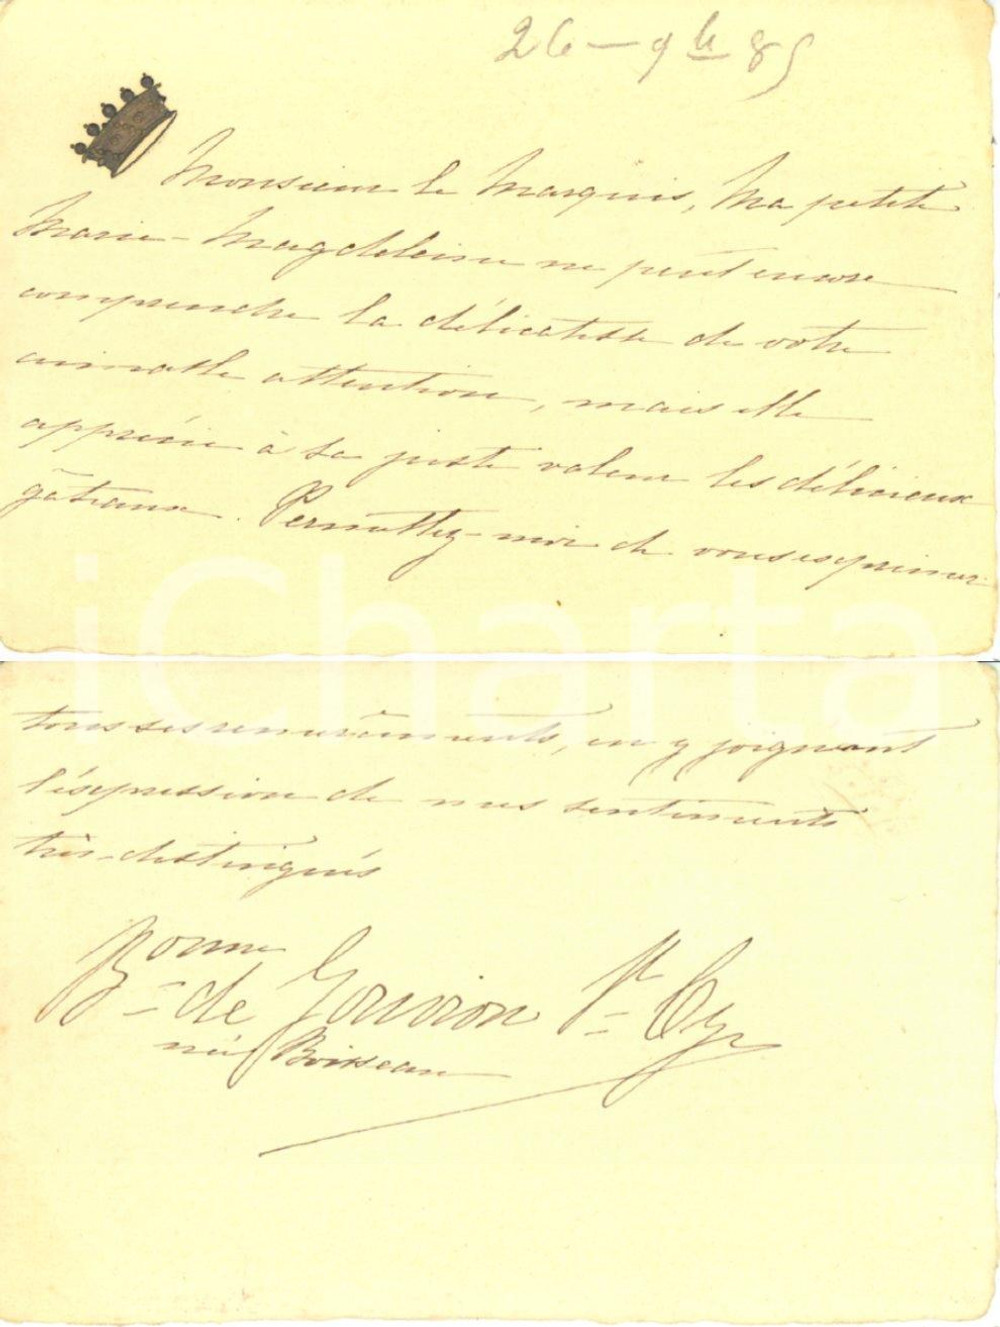 26 - 9bre 85
Monsieur le Marquis, Ma petite
Marie-Magdeleine ne peut encore
comprendre la délicatesse de votre
aimable attention, mais elle
apprécie à sa juste valeur les délicieux
gâteaux. Permettez-moi de vous exprimer
iCharta
tous ses remerciements, en y joignant
l'expression de mes sentiments
très-distingués
Bonne de Gouvion St Cyr
née Boisseau